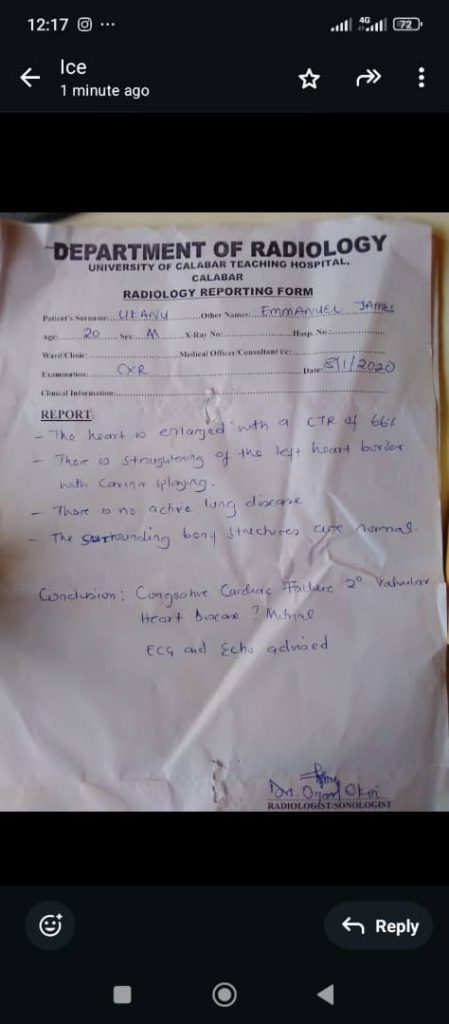 12:17
4G
72
Ice
1 minute ago
DEPARTMENT OF RADIOLOGY
UNIVERSITY OF CALABAR TEACHING HOSPITAL,
CALABAR
RADIOLOGY REPORTING FORM
Patient's Surname: UKANU Other Names: EMMANUEL JAMES
Age: 20 Sex: M X-Ray No: Hosp. No.:
Ward/Clinic: Medical Officer/Consultant I/c:
Examination: CXR Date: 8/1/2020
Clinical Information:
REPORT
- The heart is enlarged with a CTR of 66%
- There is straightening of the left heart border
with carina splaying.
- There is no active lung disease
- The surrounding bony structures are normal.
Conclusion: Congestive Cardiac Failure 2° Valvular
Heart Disease ? Mitral
ECG and Echo advised
Dr.
RADIOLOGIST/SONOLOGIST
Reply